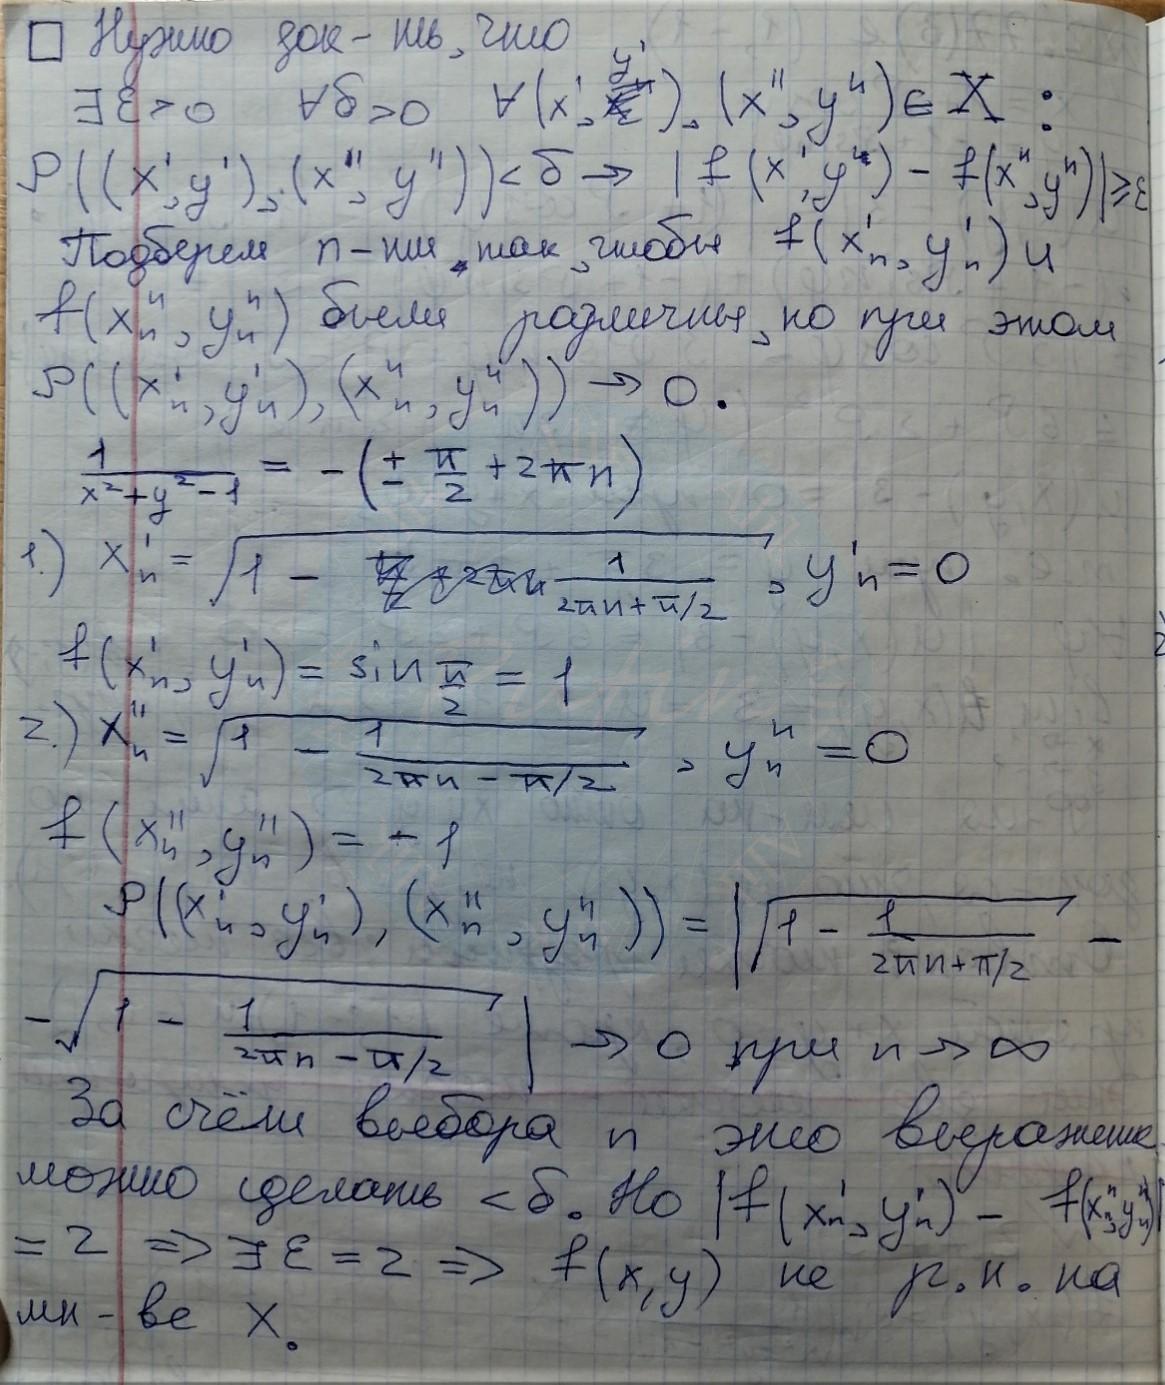 □ Нужно док-ть, что
∃ε>0 ∀δ>0 ∀(x', y'), (x'', y'') ∈ X :
ρ((x', y'), (x'', y'')) < δ → |f(x', y'') - f(x'', y'')| ≥ ε
Подберем n-ки так, чтобы f(x'ₙ, y'ₙ) и
f(x''ₙ, y''ₙ) были различны, но при этом
ρ((x'ₙ, y'ₙ), (x''ₙ, y''ₙ)) → 0.
1/(x²+y²-1) = -(± π/2 + 2πn)
1.) x'ₙ = √(1 - 1/(2πn+π/2)), y'ₙ = 0
f(x'ₙ, y'ₙ) = sin π/2 = 1
2.) x''ₙ = √(1 - 1/(2πn - π/2)), y''ₙ = 0
f(x''ₙ, y''ₙ) = -1
ρ((x'ₙ, y'ₙ), (x''ₙ, y''ₙ)) = |√(1 - 1/(2πn+π/2)) -
- √(1 - 1/(2πn - π/2))| → 0 при n → ∞
За счёт выбора n это выражение
можно сделать < δ. Но |f(x'ₙ, y'ₙ) - f(x''ₙ, y''ₙ)|
= 2 => ∃ε = 2 => f(x, y) не р.н. на
мн-ве X.